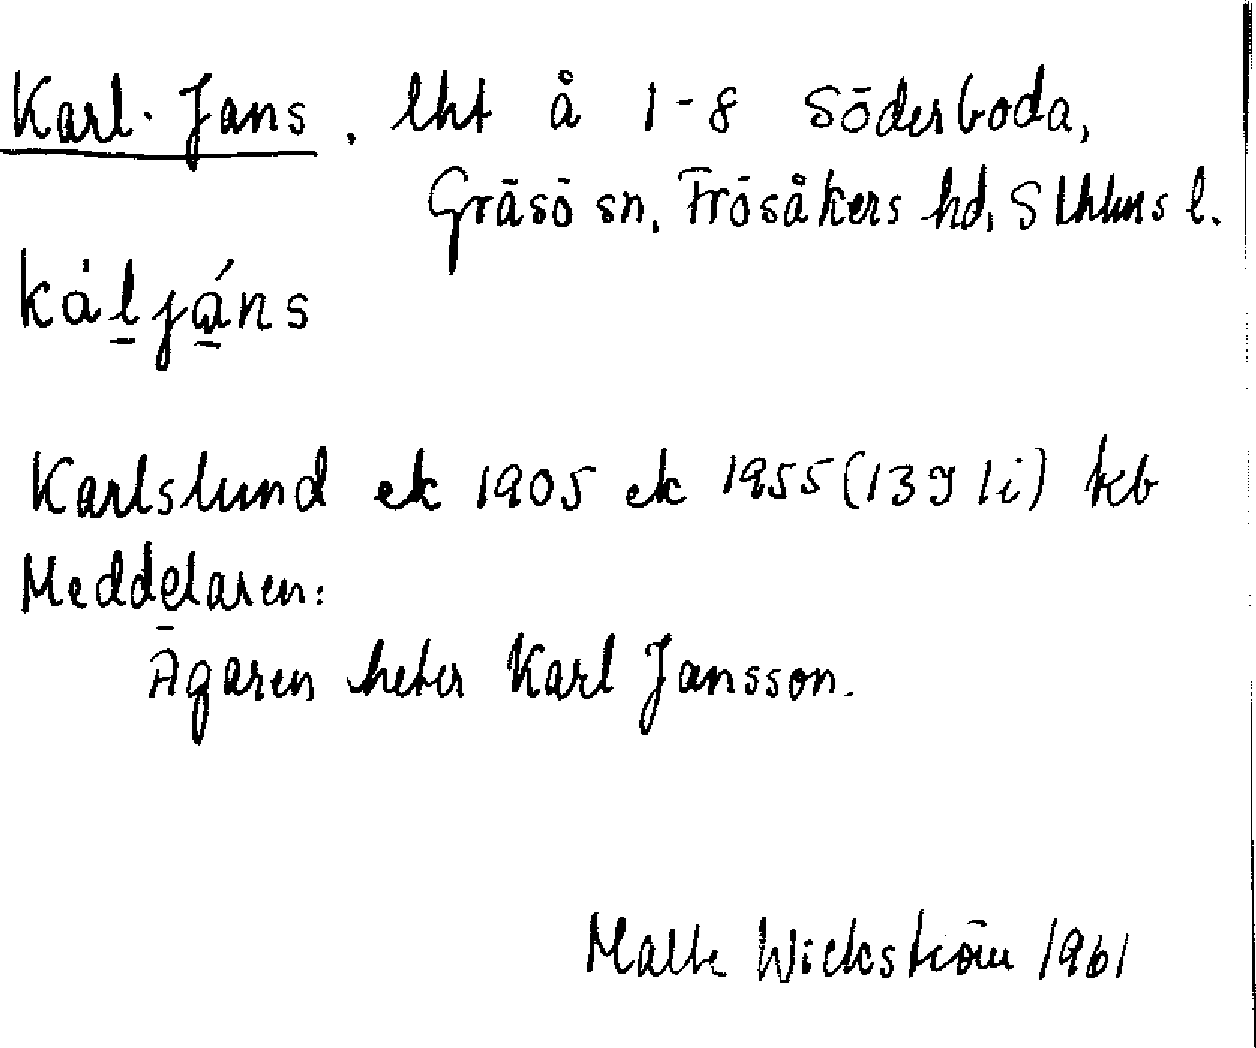 Karl-Jans, lht å 1-8 Söderboda,
Gräsö sn, Frösåkers hd, Sthlms l.
kàl̠já̠ns
Karlslund ek 1905 ek 1955 (13g 1i) kb
Meddelaren:
Ägaren heter Karl Jansson.
Malte Wickström 1961